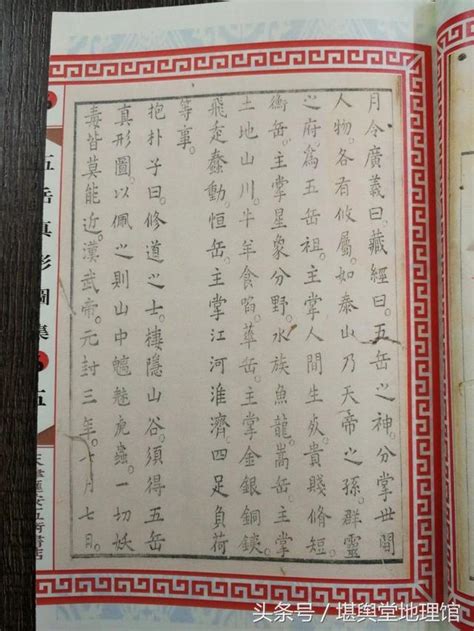 月令廣義曰。藏經曰。五岳之神。分掌世間
人物。各有攸屬。如泰山乃天帝之孫。群靈
之府。為五岳祖。主掌人間生死貴賤脩短。
衡岳。主掌星象分野。水族魚龍。嵩岳。主掌
土地山川。牛羊食啗。華岳。主掌金銀銅鐵。
飛走蠢動。恒岳。主掌江河淮濟。四足負荷
等事。
抱朴子曰。修道之士。棲隱山谷。須得五岳
真形圖。以佩之。則山中魑魅虎蟲。一切妖
毒皆莫能近。漢武帝。元封三年。七月七日。
五岳真形圖集
五
头条号/堪舆堂地理馆